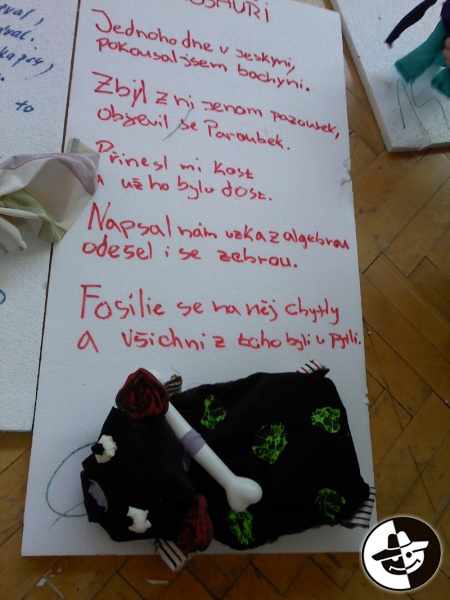 Jednoho dne v jeskyni,
pokousal jsem bachyni.
Zbyl z ní jenom pazourek,
objevil se Paroubek.
Přinesl mi kost
a už ho bylo dost.
Napsal nám vzkaz algebrou
odešel i se zebrou.
Fosilie se na něj chytly
a všichni z toho byli v pytli.
to